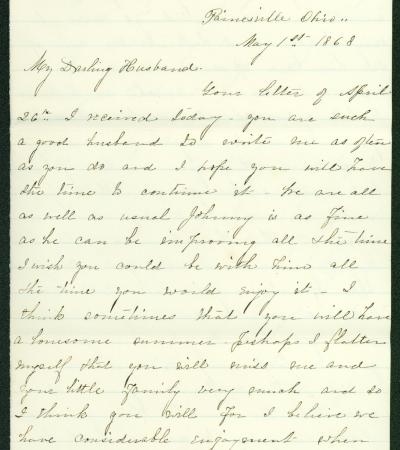 Painesville Ohio..
May 1st 1868
My Darling Husband.
Your letter of April
26th I received today - you are such
a good husband to write me as often
as you do and I hope you will have
the time to continue it - We are all
as well as usual Johnny is as fine
as he can be improoving all the time
I wish you could be with him all
the time you would enjoy it - I
think sometimes that you will have
a lonesome summer perhaps I flatter
myself that you will miss me and
your little family very much and so
I think you will for I believe we
have considerable enjoyment when